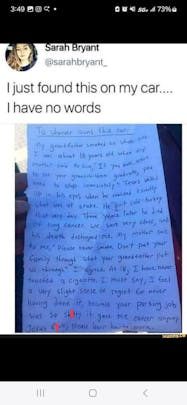 3:49
73%
Sarah Bryant
@sarahbryant_
I just found this on my car....
I have no words
To whoever owns this car:
My grandfather smoked his whole life.
I was about 10 years old when my
mother said to him, "If you ever want
to see your grandchildren graduate, you
have to stop immediately." Tears welled
his eyes when he realized exactly
what was at stake. He quit
that very day. Three years later he died
of lung cancer. It was very and
his death destroyed me. My mother said
to me, "Please never smoke. Don't put your
family through what your grandfather put
us through." I agreed. At I have never
touched a cigarette. I must say, I feel
a very slight sense of regret for never
having done it, because your parking job
was so it gave me cancer anyway.